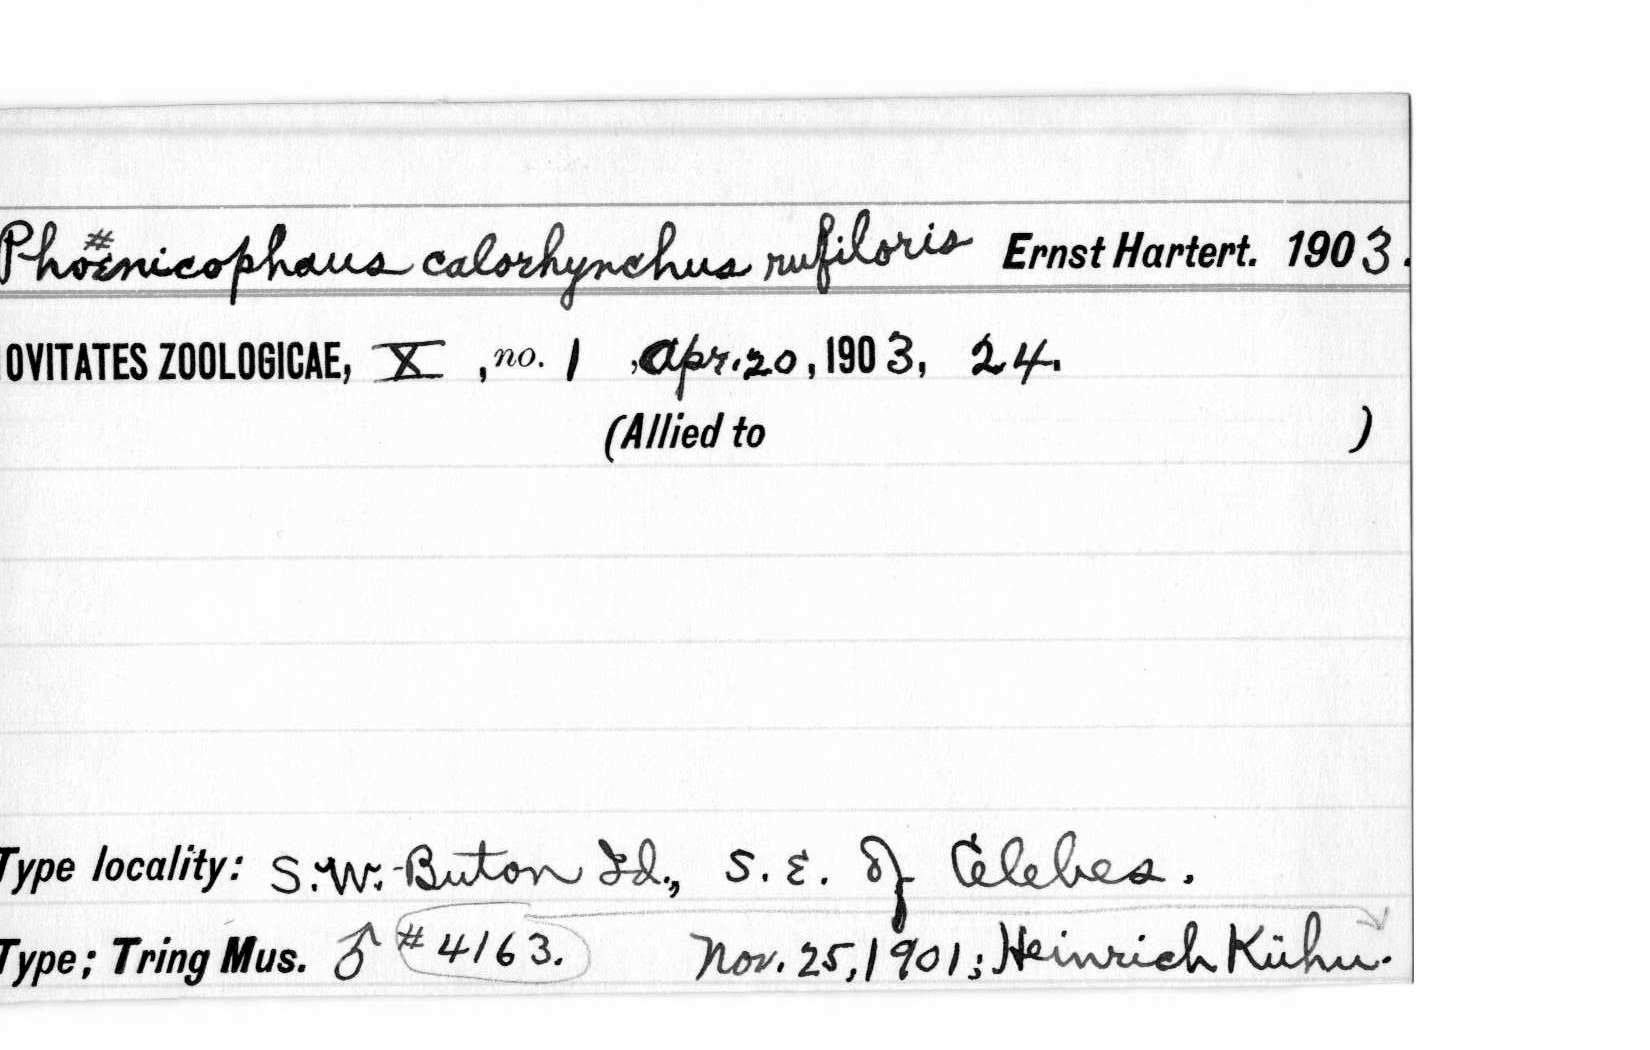 #
Phoenicophaus calorhynchus rufiloris Ernst Hartert. 1903.
OVITATES ZOOLOGICAE, X, no. 1, Apr. 20, 1903, 24.
(Allied to )
Type locality: S.W. Buton Id., S.E. of Celebes.
Type; Tring Mus. ♂ #4163. Nov. 25, 1901; Heinrich Kühn.